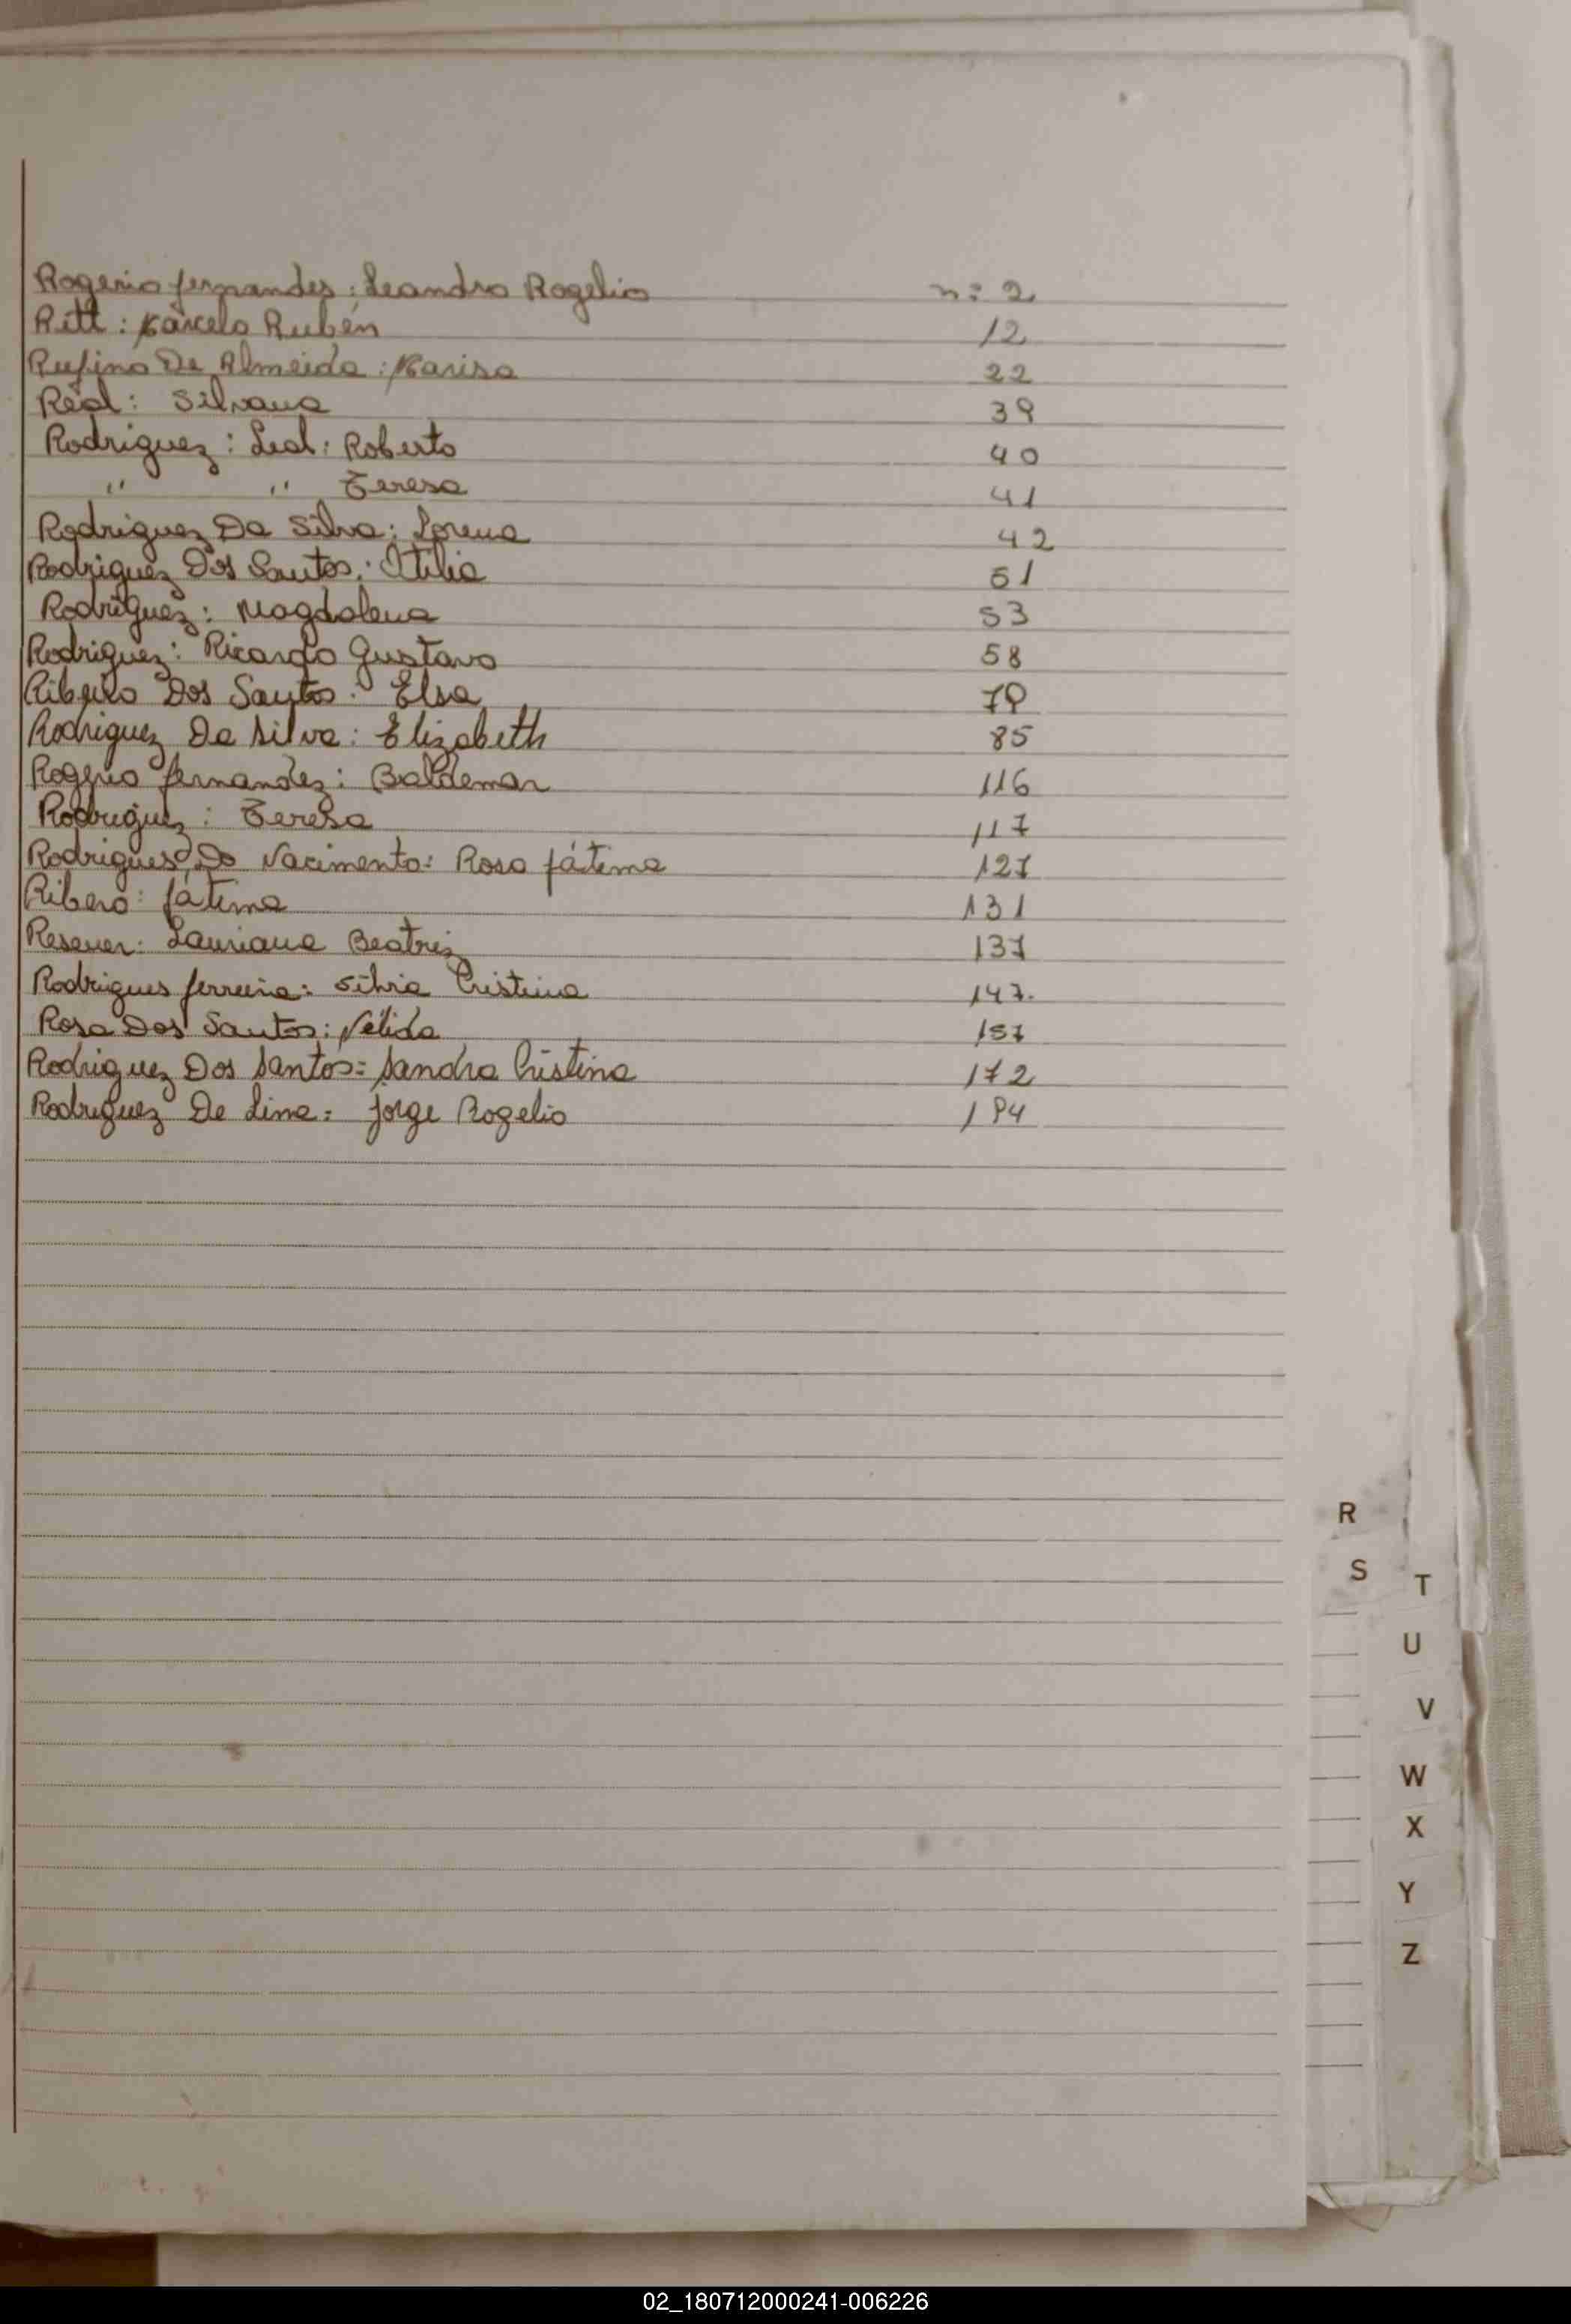 Rogerio fernandes: Leandro Rogelio n: 2
Ritt: Marcelo Rubén 12
Rufino De Almeida: Marisa 22
Real: Silvana 39
Rodriguez: Leal: Roberto 40
" " Teresa 41
Rodriguez Da Silva: Lorena 42
Rodriguez Dos Santos: Otilia 51
Rodriguez: Magdalena 53
Rodriguez: Ricardo Gustavo 58
Ribeiro Dos Santos: Elsa
Rodriguez Da Silva: Elizabeth 85
Rogerio fernandez: Baldemar 116
Rodriguez: Teresa 117
Rodrigues Do Nacimento: Rosa fátima 127
Ribero: fatima 131
Lauriana Beatriz 137
Rodrigues ferreira: Silvia Cristina 147.
Rosa Dos Santos: Nélida 157
Rodriguez Dos Santos: Sandra Cristina 172
Rodriguez De Lima: Jorge Rogelio 184
R
S
T
U
V
W
X
Y
Z
02_180712000241-006226